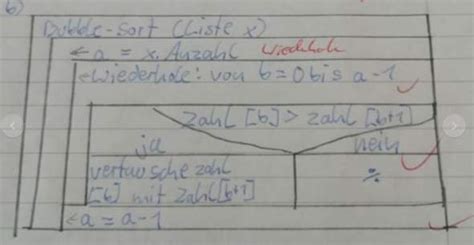 b)
Bubble-Sort (Liste x)
← a = x. Anzahl wiederhole
← wiederhole: von b = 0 bis a-1
zahl [b] > zahl [b+1]
ja nein
vertausche zahl
[b] mit zahl [b+1] ÷
← a = a-1